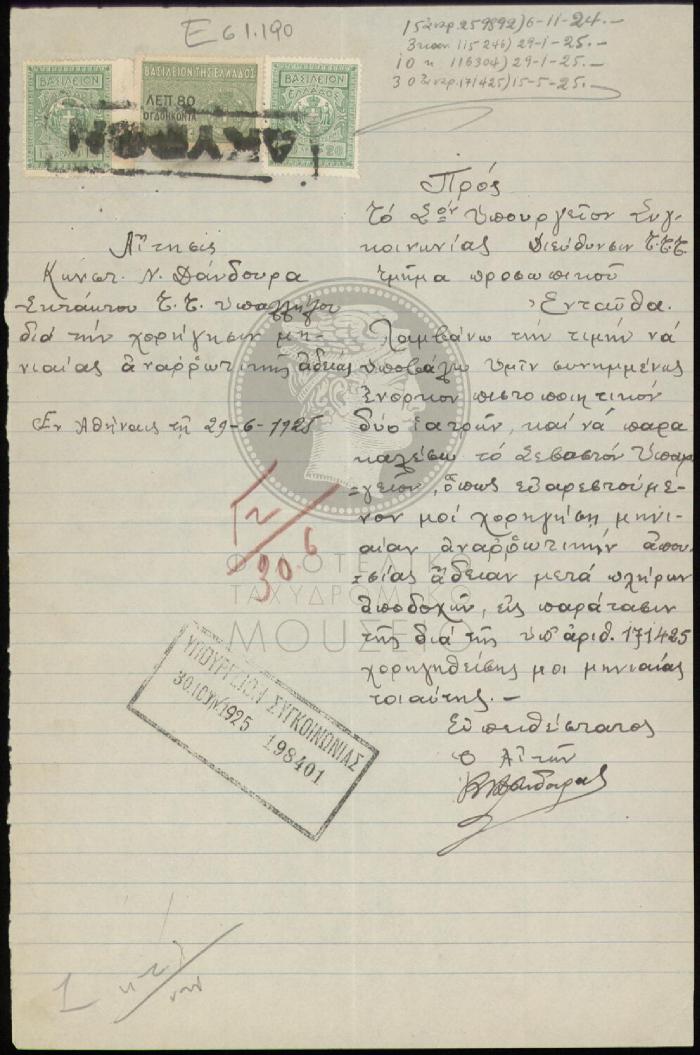 Ε61.190
15 ἀναρ. 259892) 6-11-24.-
3 καν. 115246) 29-1-25.-
10 κ 116304) 29-1-25.-
30 ἀναρ. 171425) 15-5-25.-
ΒΑΣΙΛΕΙΟΝ
ΕΛΛΑΔΟΣ
ΒΑΣΙΛΕΙΟΝ ΤΗΣ ΕΛΛΑΔΟΣ
ΛΕΠ. 80
ΟΓΔΟΗΚΟΝΤΑ
ΒΑΣΙΛΕΙΟΝ
ΕΛΛΑΔΟΣ
20
Αἴτησις
Κωνστ. Ν. Δάνδουρα
Ἐκτάκτου Τ.Τ. ὑπαλλήλου
διά τήν χορήγησιν μη-
νιαίας ἀναρρωτικῆς ἀδείας
Ἐν Ἀθήναις τῇ 29-6-1925
Πρός
τό Σον Ὑπουργεῖον Συγ-
κοινωνίας Διεύθυνσιν Τ.Τ.Τ.
τμῆμα προσωπικοῦ
Ἐνταῦθα.
Λαμβάνω τήν τιμήν νά
ὑποβάλω ὑμῖν συνημμένως
ἔνορκον πιστοποιητικόν
δύο ἰατρῶν, καί νά παρα
καλέσω τό Σεβαστόν Ὑπουρ
=γεῖον, ὅπως εὐαρεστούμε-
νον μοί χορηγήσῃ μηνι-
αίαν ἀναρρωτικήν ἀπου-
=σίας ἄδειαν μετά πλήρων
ἀποδοχῶν, εἰς παράτασιν
τῆς διά τῆς ὑπ' ἀριθ. 171425
χορηγηθείσης μοι μηνιαίας
τοιαύτης.-
Εὐπειθέστατος
Ὁ Αἰτῶν
30 6
ΦΙΛΟΤΕΛΙΚΟ
ΤΑΧΥΔΡΟΜΙΚΟ
ΜΟΥΣΕΙΟ
ΥΠΟΥΡΓΕΙΟΝ ΣΥΓΚΟΙΝΩΝΙΑΣ
30.ΙΟΥΝ.1925 198401